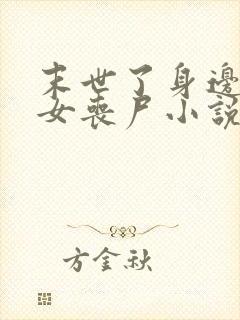 末世了身邊
女喪尸小說
方金秋